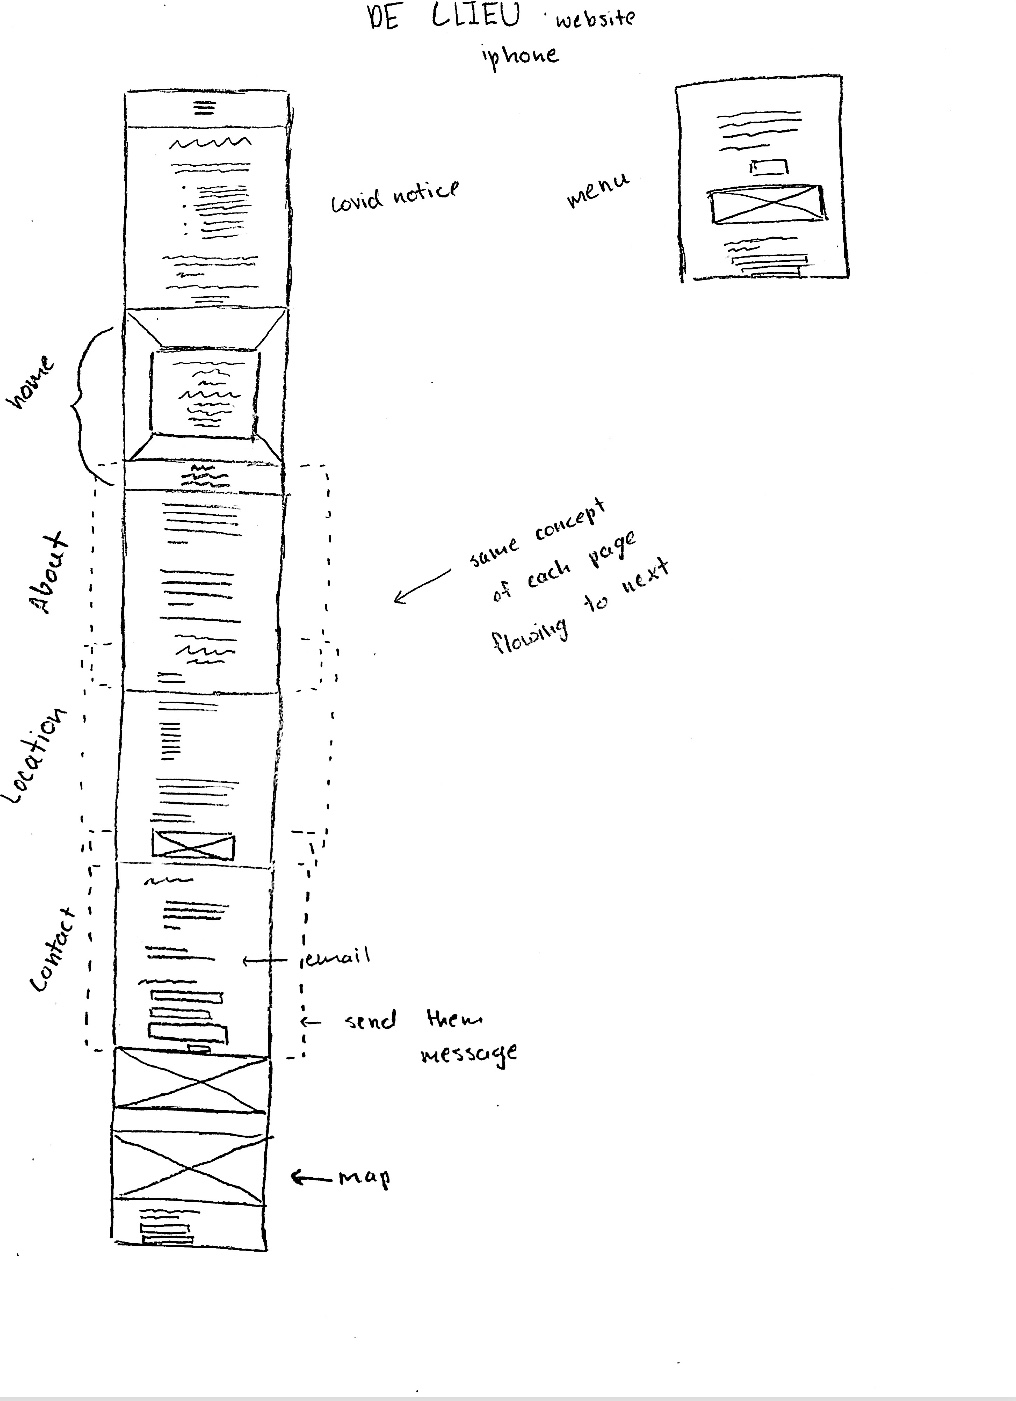 DE CLIEU website
iphone
covid notice
menu
home
About
same concept
of each page
flowing to next
Location
Contact
email
send them
message
map